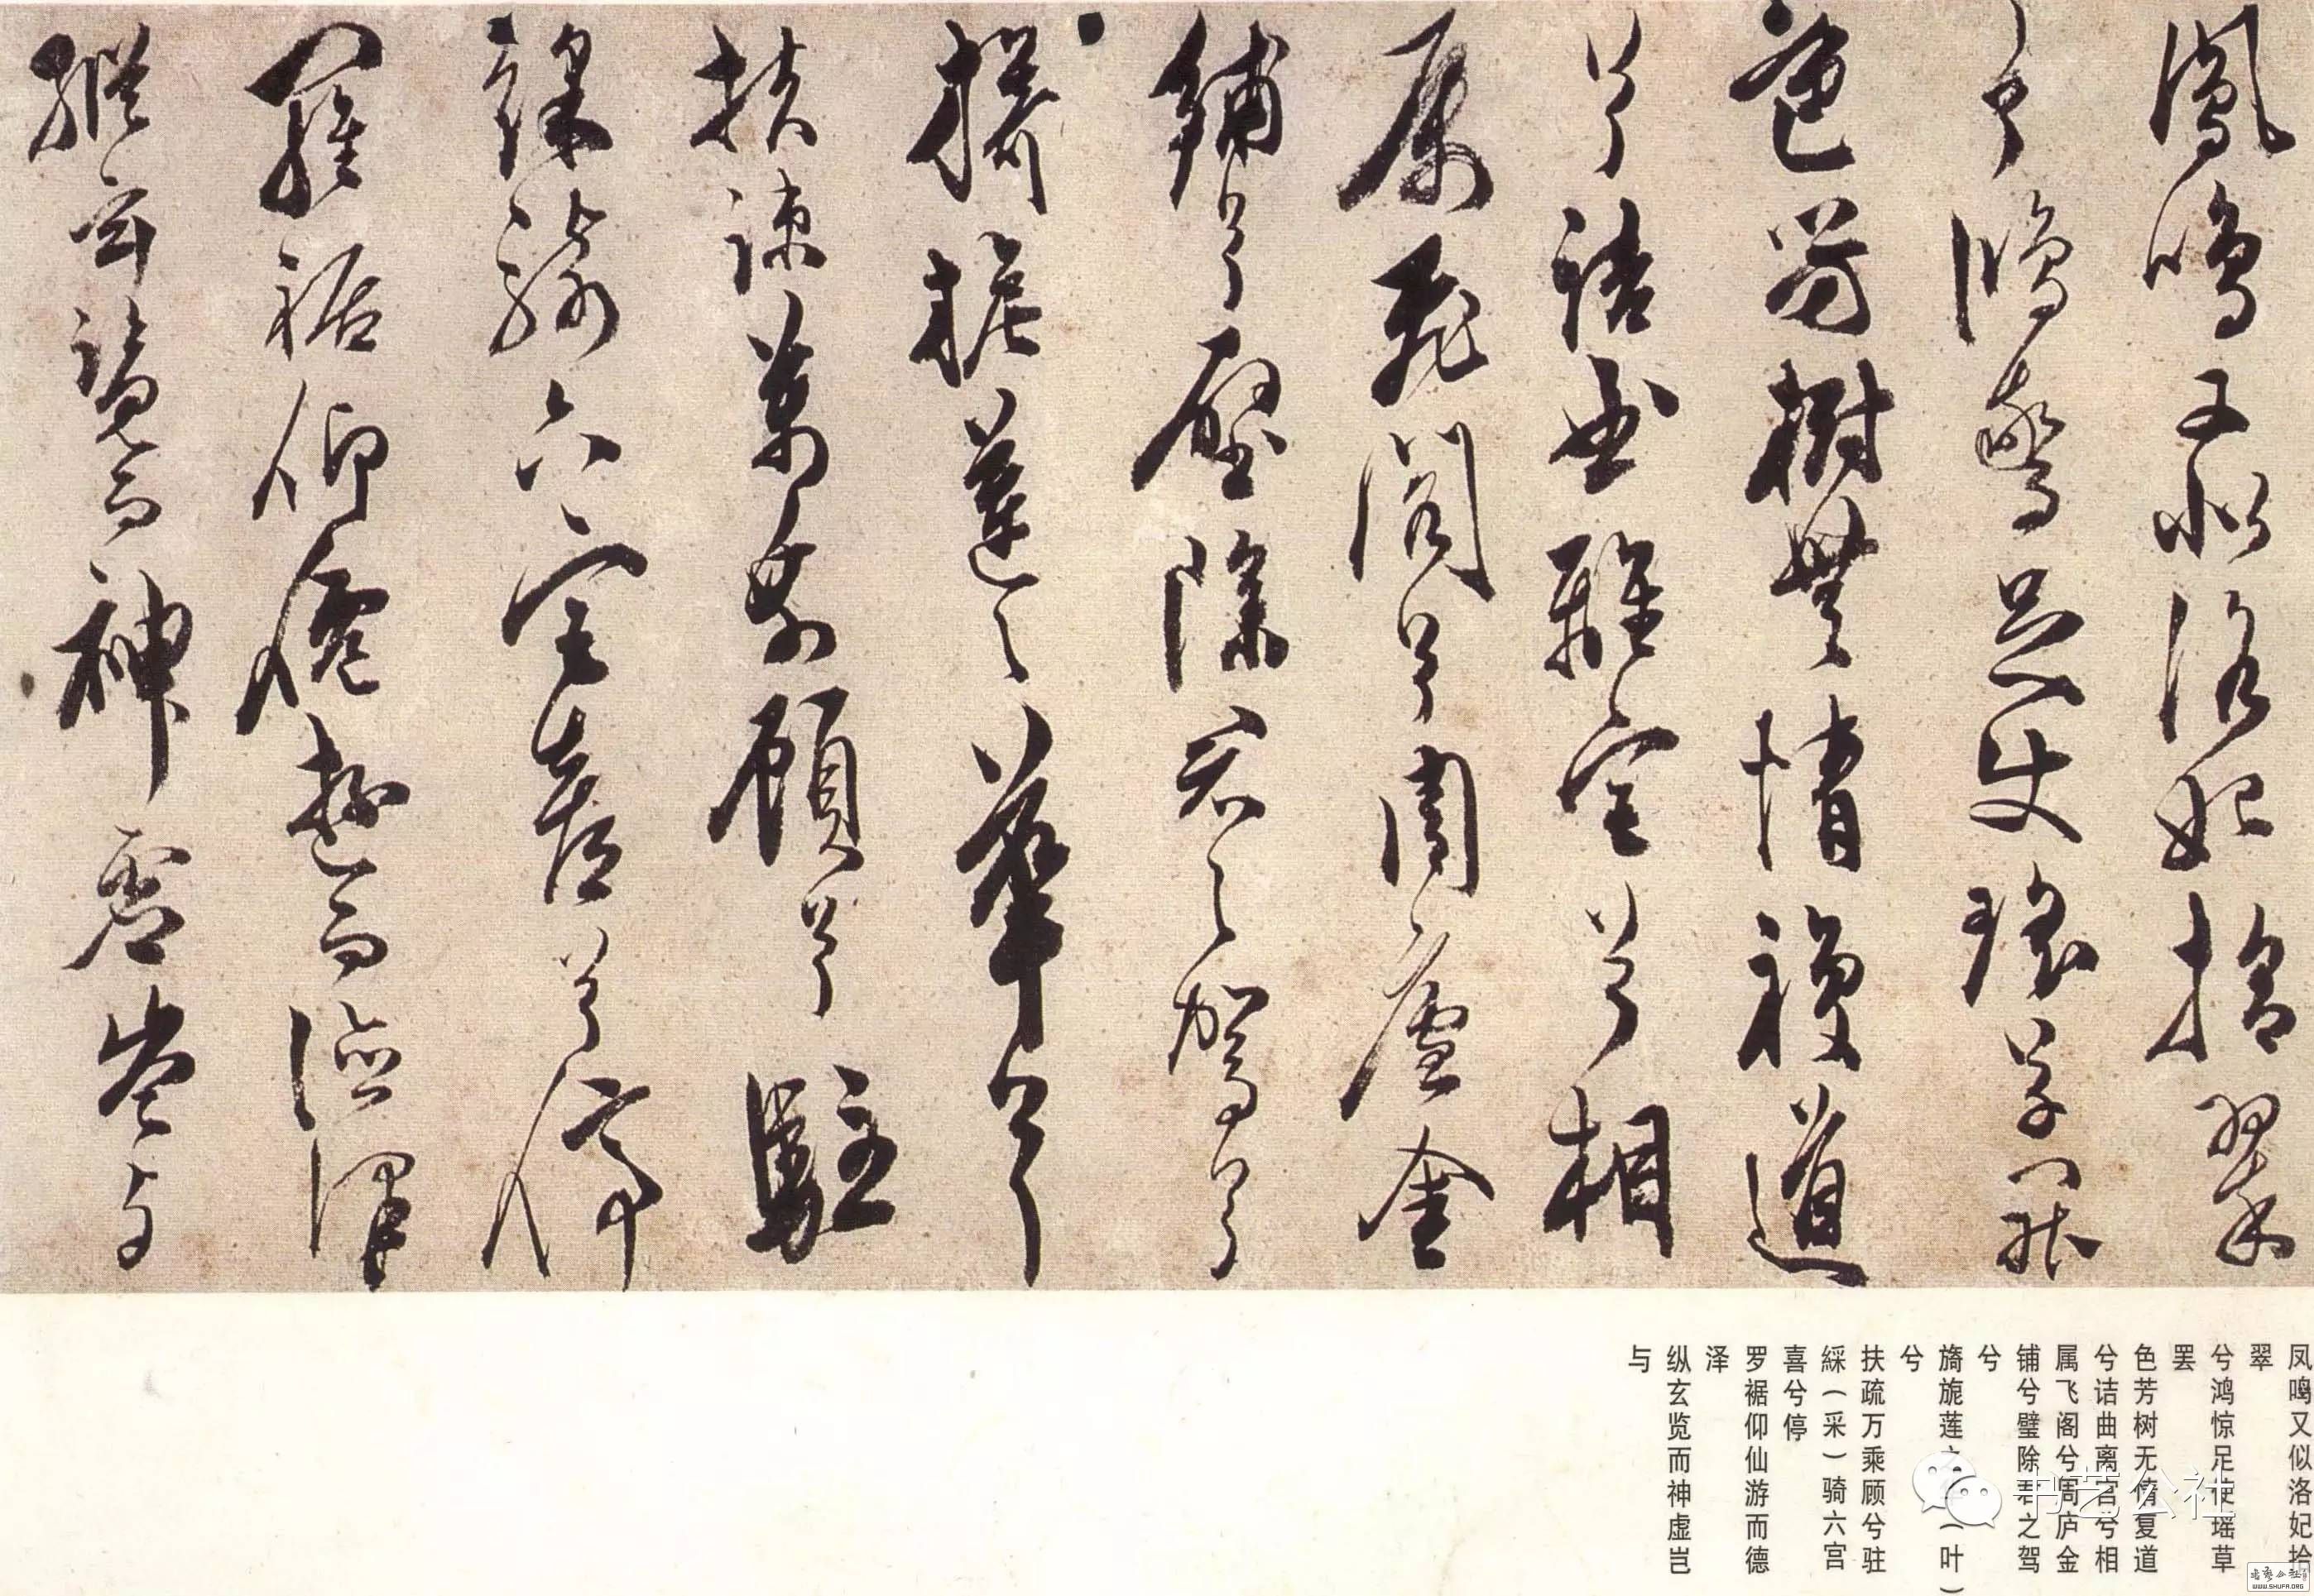 鳳鳴又似洛妃拾翠
兮鴻驚足使瑤草罷
色芳樹無情複道
兮詰曲離宮兮相
属飛閣兮周廬金
鋪兮璧除君之駕兮
旖旎蓮之葉兮
扶疎萬乘顧兮駐
綵騎六宮喜兮停
羅裾仰僊遊而德澤
縱玄覽而神虛豈与
凤鸣又似洛妃拾
翠
兮鸿惊足使瑶草
罢
色芳树无情复道
兮诘曲离宫兮相
属飞阁兮周庐金
铺兮璧除君之驾
兮
旖旎莲之（叶）
兮
扶疏万乘顾兮驻
綵（采）骑六宫
喜兮停
罗裾仰仙游而德
泽
纵玄览而神虚岂
与
书艺公社
书艺公社
WWW.SHUFA.ORG